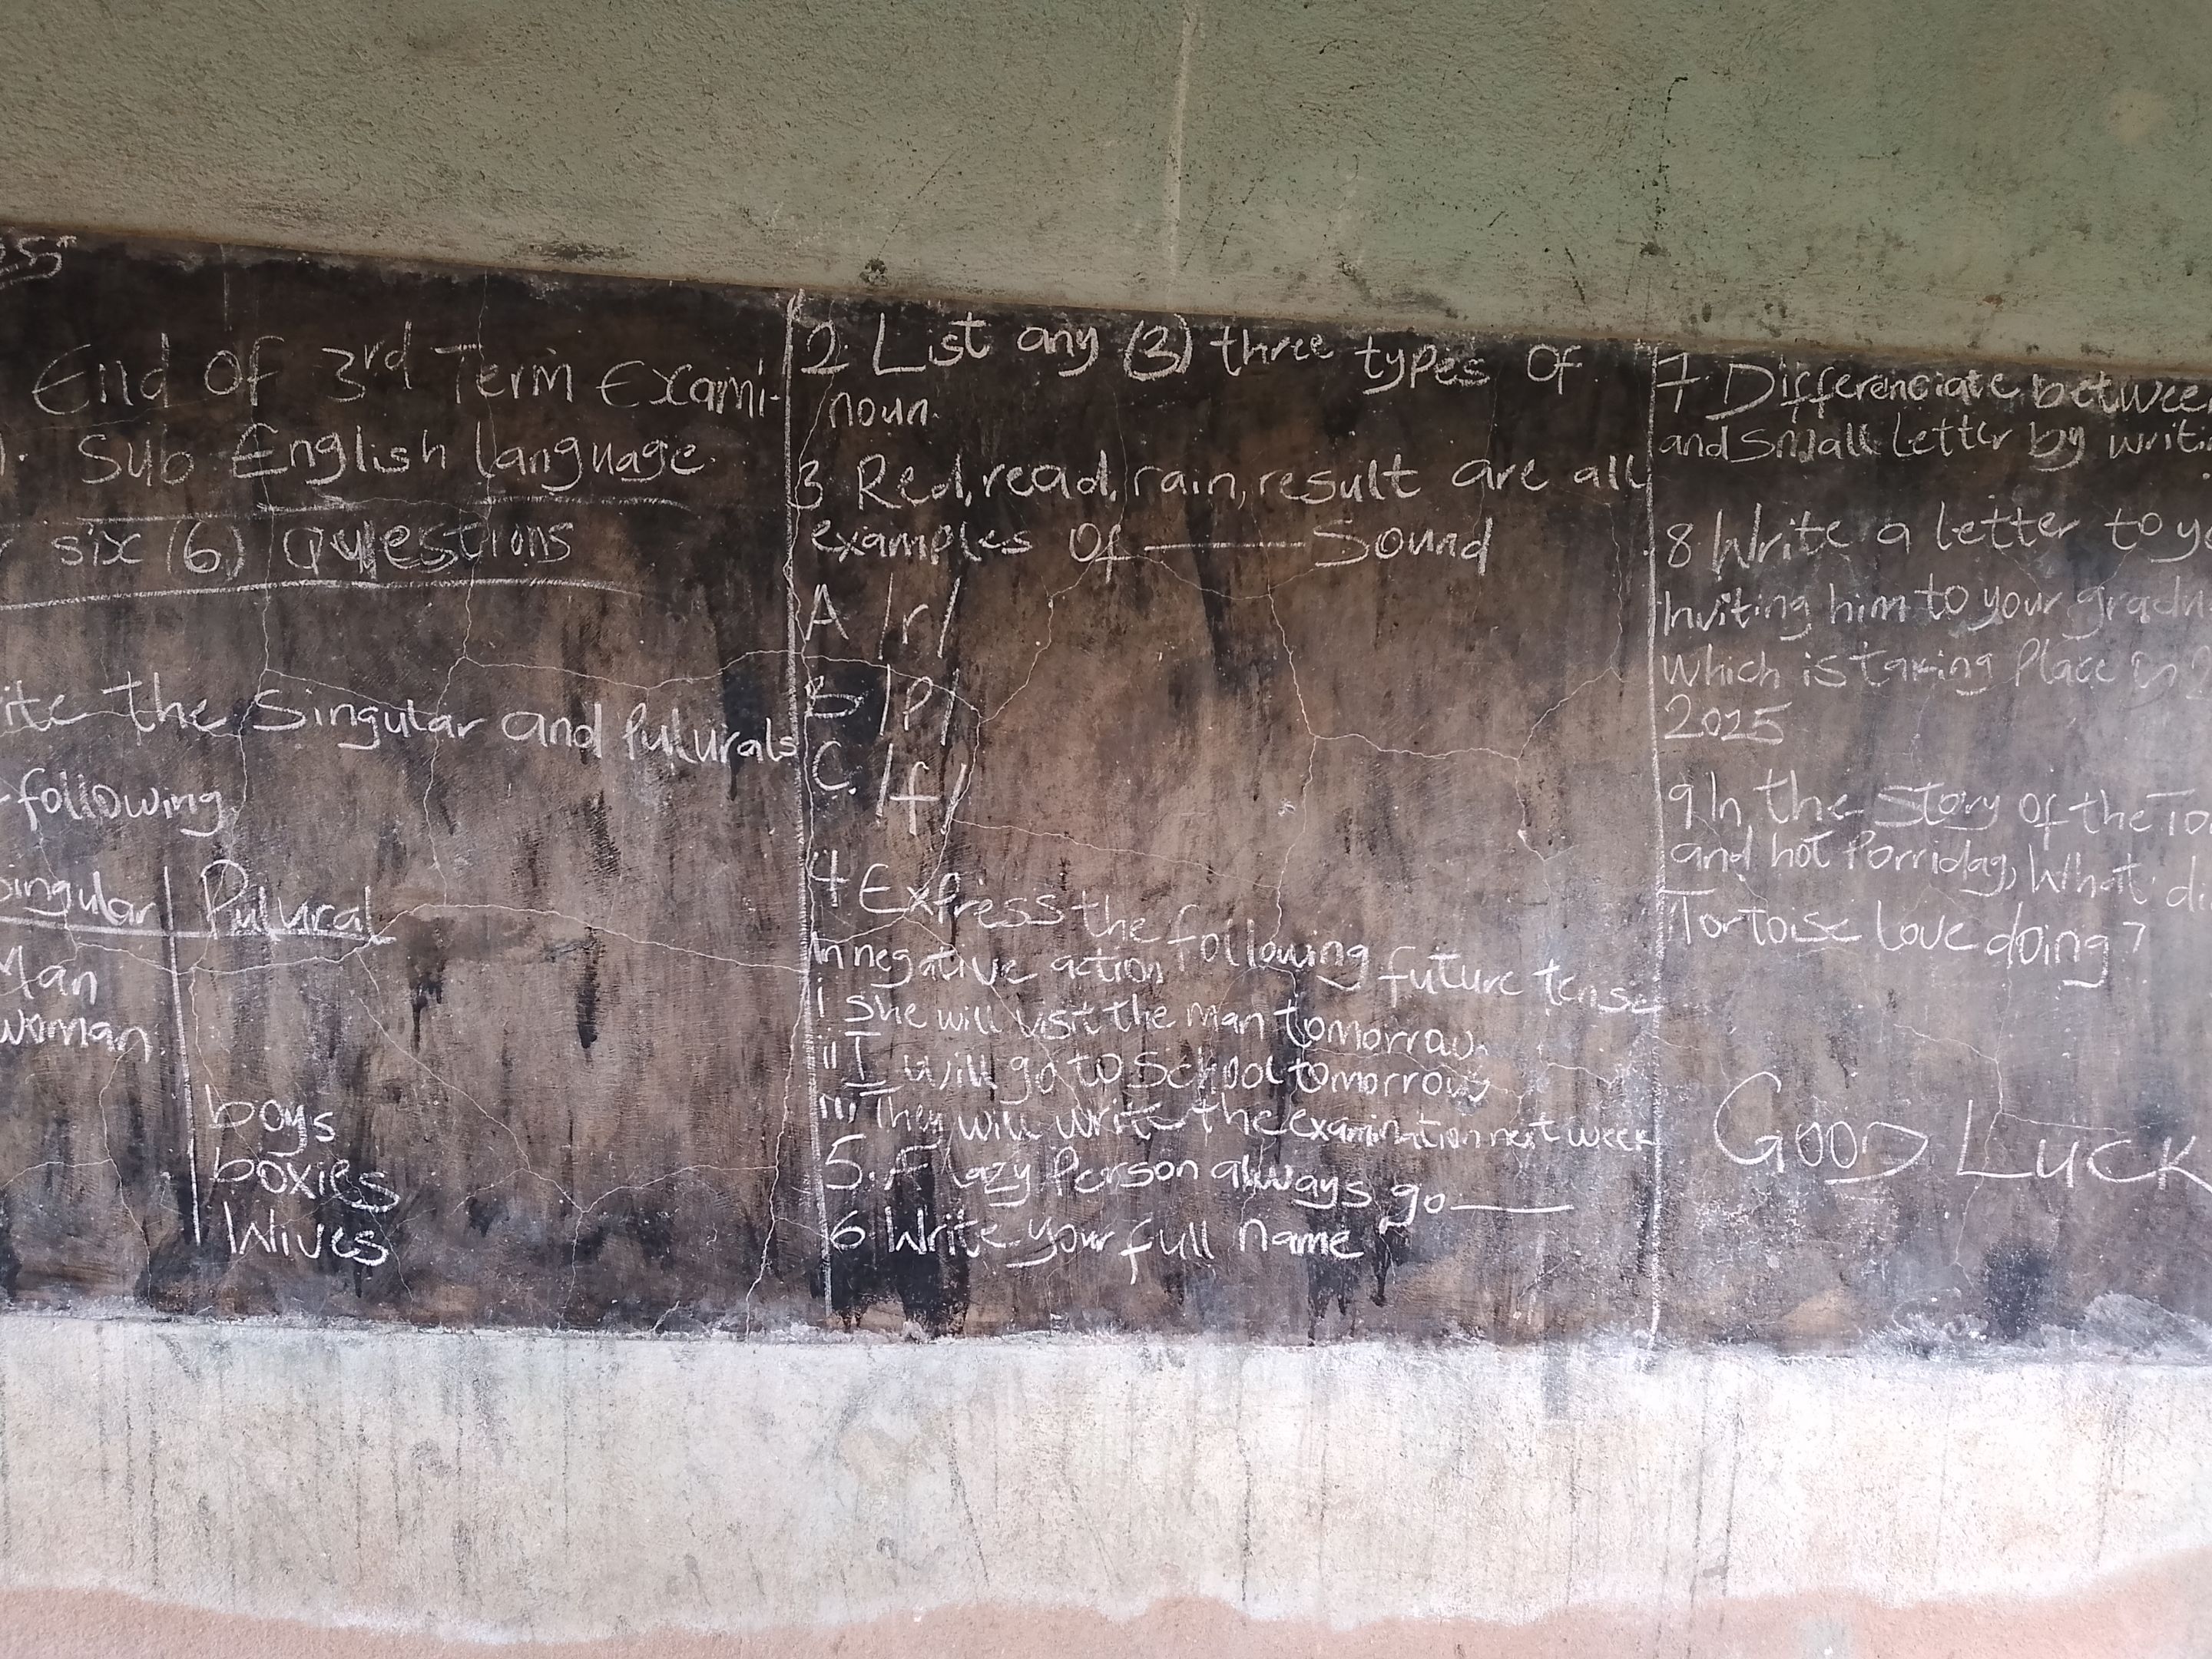 End Of 3rd Term Exami-
Sub English language
six (6) Questions
the Singular and Pulurals
following
Singular | Pulural
Man
woman
boys
boxies
Wives
2. List any (3) three types Of
noun.
3 Red, read, rain, result are all
examples Of ______ Sound
A /r/
B /p/
C. /f/
4 Express the following future tense
In negative action
i She will visit the man tomorrow
ii I will go to School tomorrow
iii They will write the examination next week
5. A lazy Person always go ______
6 Write your full name
7 Differenciate between
and Small Letter by
8 Write a letter to
Inviting him to your
which is taking Place in
2025
9 In the Story Of the
and hot Porriday, What
Tortoise love doing?
GOOD LUCK